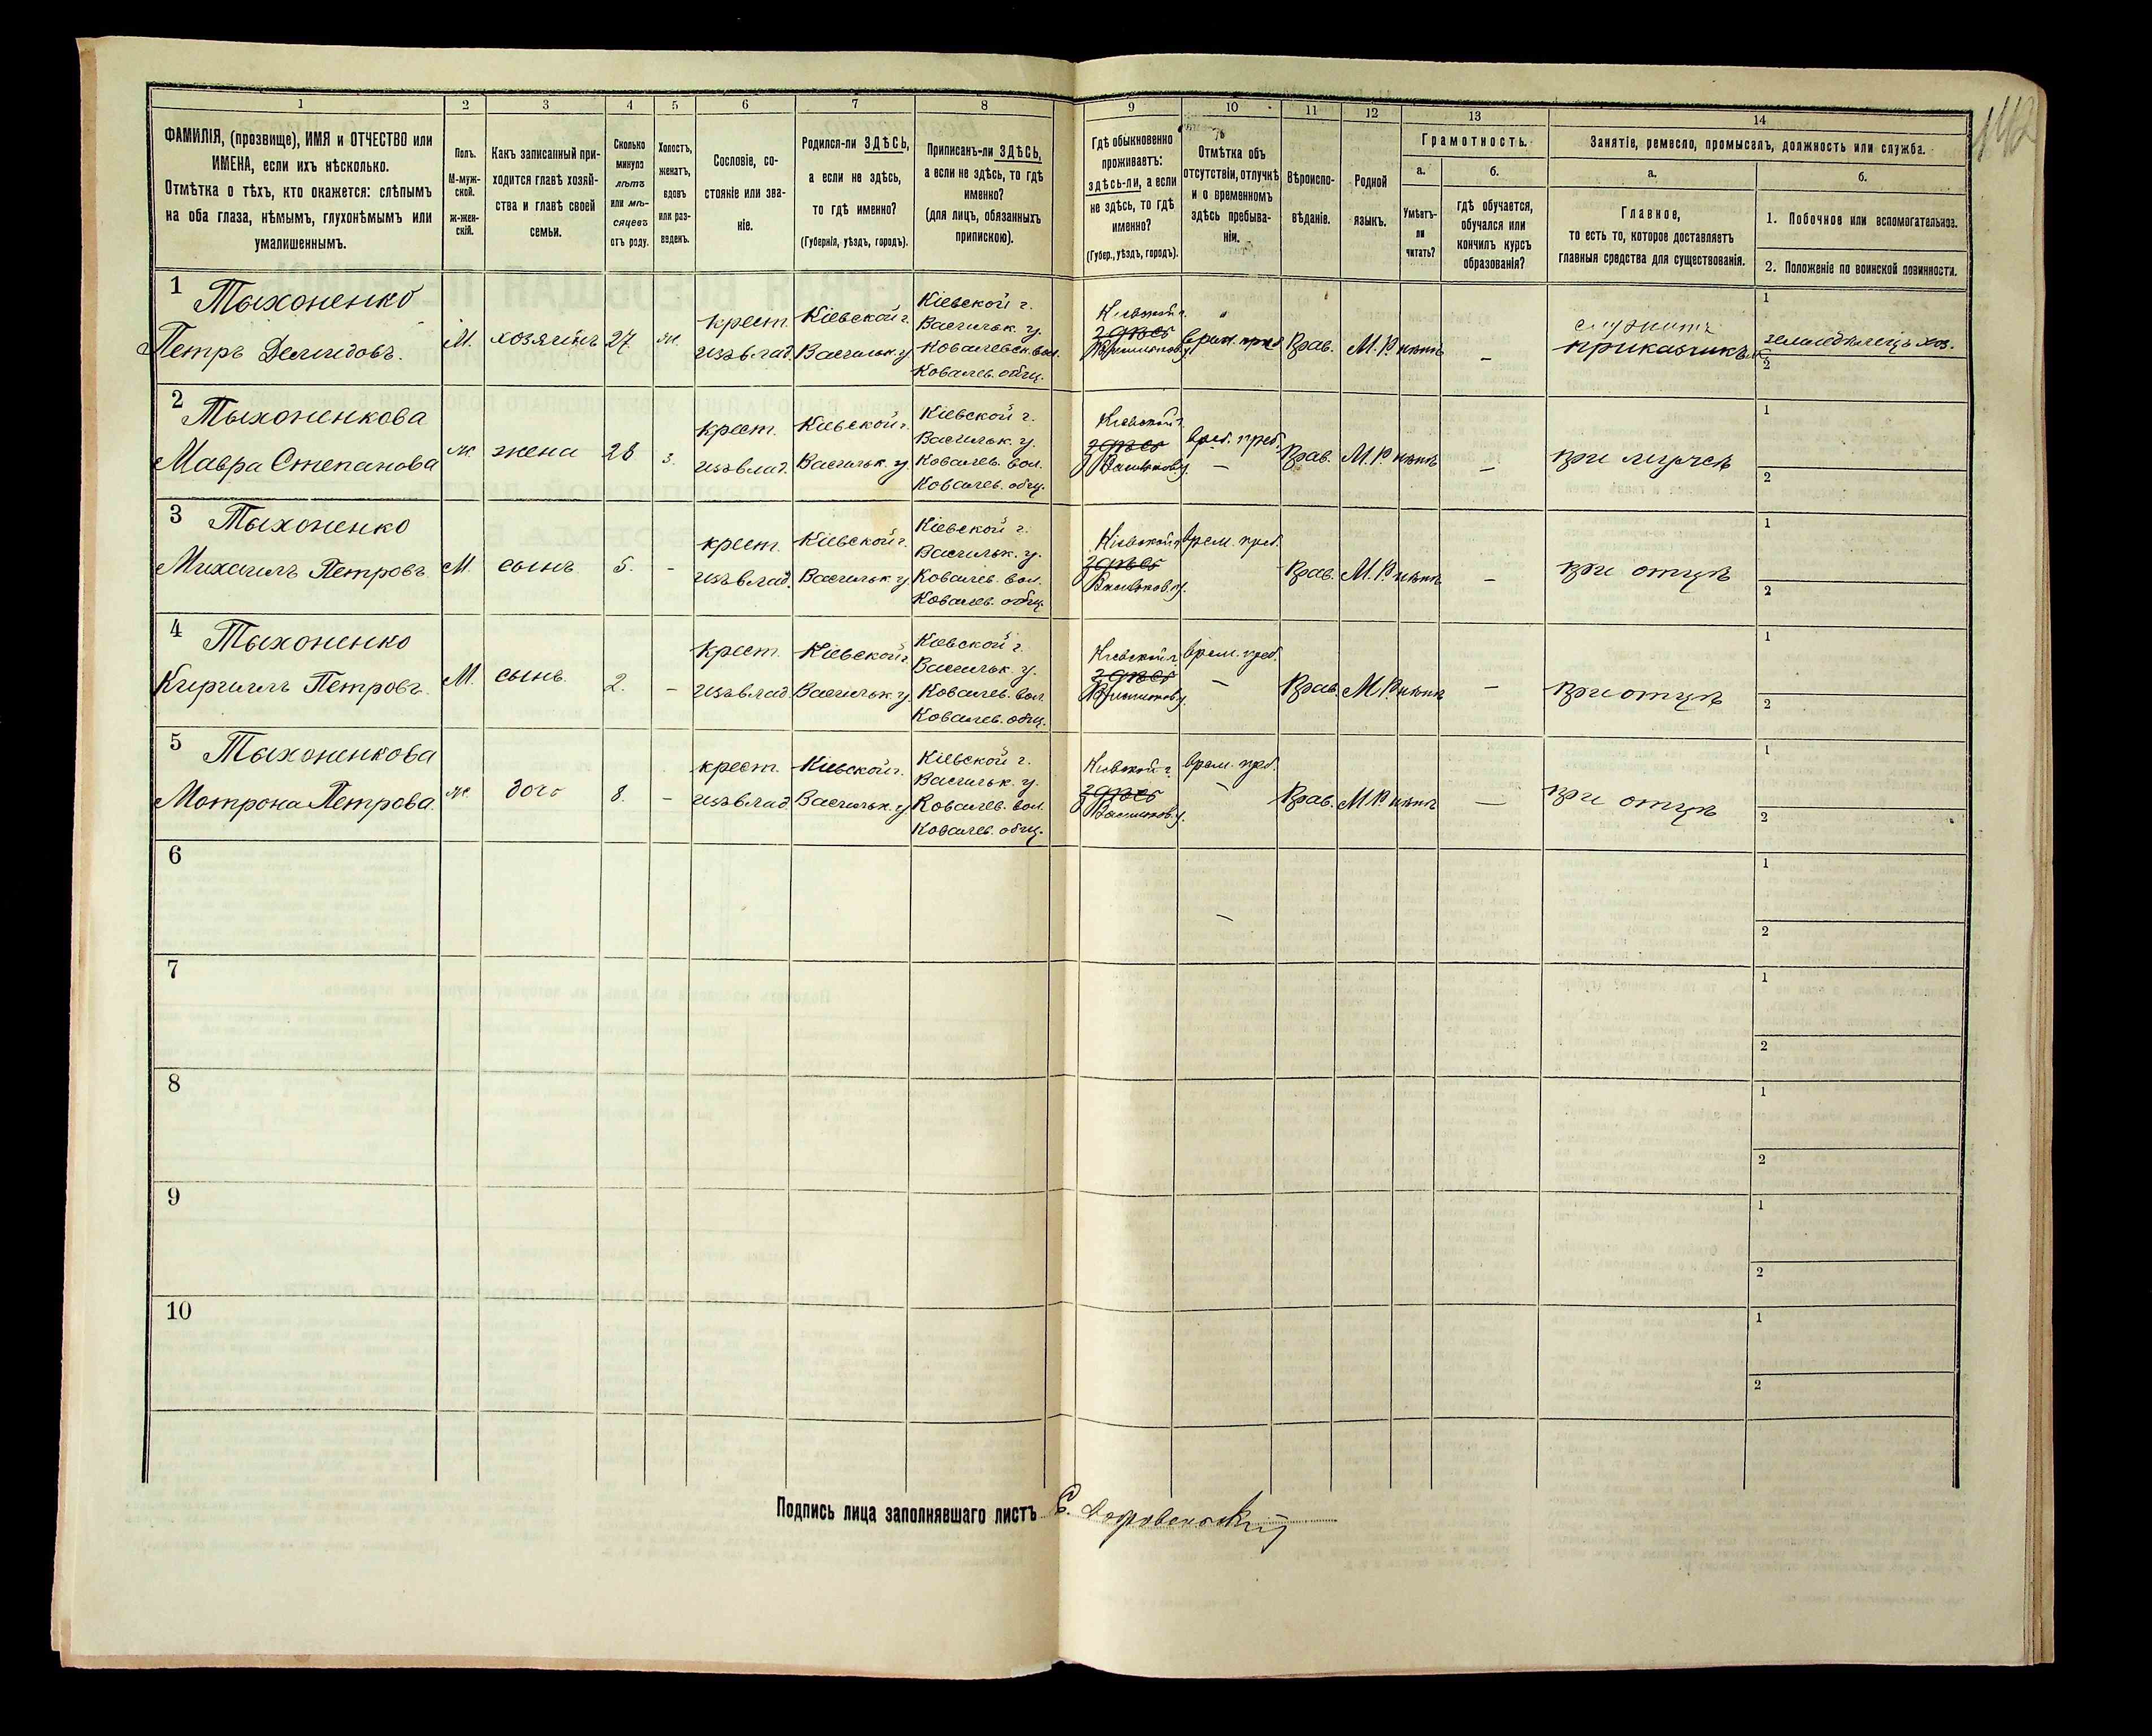 142
1 2 3 4 5 6 7 8 9 10 11 12 13 14
ФАМИЛІЯ, (прозвище), ИМЯ и ОТЧЕСТВО или
ИМЕНА, если ихъ нѣсколько.
Отмѣтка о тѣхъ, кто окажется: слѣпымъ
на оба глаза, нѣмымъ, глухонѣмымъ или
умалишеннымъ.
Полъ.
М-муж-
ской.
ж-жен-
скій.
Какъ записанный при-
ходится главѣ хозяй-
ства и главѣ своей
семьи.
Сколько
минуло
лѣтъ
или мѣ-
сяцевъ
отъ роду.
Холостъ,
женатъ,
вдовъ
или раз-
веденъ.
Сословіе, со-
стояніе или зва-
ніе.
Родился-ли ЗДѢСЬ,
а если не здѣсь,
то гдѣ именно?
(Губернія, уѣздъ, городъ).
Приписанъ-ли ЗДѢСЬ,
а если не здѣсь, то гдѣ
именно?
(для лицъ, обязанныхъ
припискою).
Гдѣ обыкновенно
проживаетъ:
здѣсь-ли, а если
не здѣсь, то гдѣ
именно?
(Губер., уѣздъ, городъ).
Отмѣтка объ
отсутствіи, отлучкѣ
и о временномъ
здѣсь пребыва-
ніи.
Вѣроиспо-
вѣданіе.
Родной
языкъ.
Грамотность.
а.
Умѣетъ-
ли
читать?
б.
гдѣ обучается,
обучался или
кончилъ курсъ
образованія?
Занятіе, ремесло, промыселъ, должность или служба.
а.
Главное,
то есть то, которое доставляетъ
главныя средства для существованія.
б.
1. Побочное или вспомогательное.
2. Положеніе по воинской повинности.
1 Тыхоненко
Петръ Демидовъ.
М.
хозяинъ
27
ж.
крест.
изъ влад.
Кіевской г.
Васильк. у.
Кіевской г.
Васильк. у.
Ковалевск. вол.
Ковалев. общ.
Кіевской г.
здѣсь
Васильков. у.
врем. преб.
Прав.
М. Р.
нѣтъ
–
служитъ
приказчикъ
1
земледѣлецъ хоз.
2
2 Тыхоненкова
Мавра Степанова
ж.
жена
28
з.
крест.
изъ влад.
Кіевской г.
Васильк. у.
Кіевской г.
Васильк. у.
Ковалев. вол.
Ковалев. общ.
Кіевской г.
здѣсь
Васильков. у.
врем. преб.
–
Прав.
М. Р.
нѣтъ
–
при мужѣ
1
2
3 Тыхоненко
Михаилъ Петровъ
М.
сынъ
5.
-
крест.
изъ влад.
Кіевской г.
Васильк. у.
Кіевской г.
Васильк. у.
Ковалев. вол.
Ковалев. общ.
Кіевской г.
здѣсь
Васильков. у.
врем. преб.
Прав.
М. Р.
нѣтъ
–
при отцѣ
1
2
4 Тыхоненко
Кирилъ Петровъ.
М.
сынъ
2.
–
крест.
изъ влад.
Кіевской г.
Васильк. у.
Кіевской г.
Васильк. у.
Ковалев. вол.
Ковалев. общ.
Кіевской г.
здѣсь
Васильков. у.
врем. преб.
–
Прав.
М. Р.
нѣтъ
–
при отцѣ
1
2
5 Тыхоненкова
Мотрона Петрова.
ж.
дочь
8.
–
крест.
изъ влад.
Кіевской г.
Васильк. у.
Кіевской г.
Васильк. у.
Ковалев. вол.
Ковалев. общ.
Кіевской г.
здѣсь
Васильков. у.
врем. преб.
–
Прав.
М. Р.
нѣтъ
–
при отцѣ
1
2
6
–
1
2
7
1
2
8
1
2
9
1
2
10
1
2
Подпись лица заполнявшаго листъ